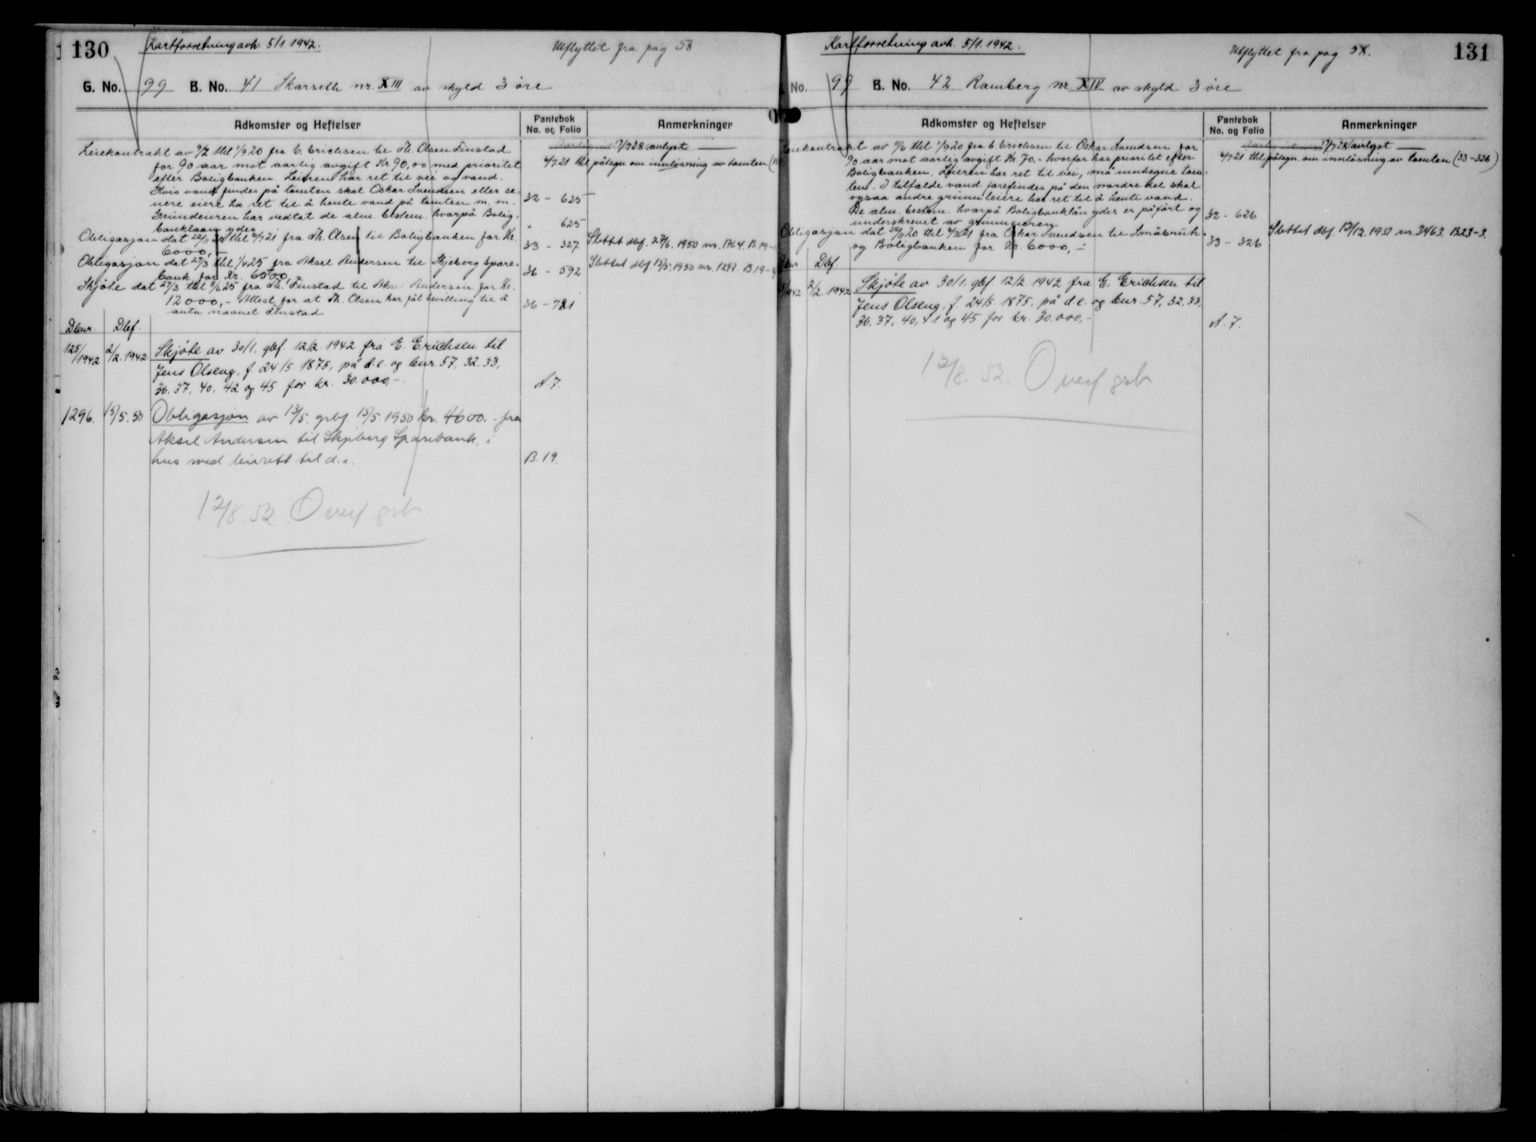 130
Kartforretning avh. 5/1 1942.
Utflyttet fra pag 58
G. No. 99 B. No. 41 Skarsette nr XIII av skyld 3 øre
Adkomster og Heftelser
Pantebok No. og Folio
Anmerkninger
Leiekontrakt av 7/2 tbl 1/9 20 fra E. Erichsen til Th. Olsen Finstad
for 90 aar mot aarlig avgift Kr 90,00 med prioritet
efter Boligbanken. Leieren har ret til vei og vand.
Hvis vand findes på tomten skal Oskar Svendsen eller se-
nere eiere ha ret til å hente vand på tomten m. m.
Grundeieren har vedtat de alm. bestem. hvorpå Bolig-
banklaan ydes
32 - 625
" 625
7/7 28 avlyst
4/7 21 tbl påtegn om innløsning av tomten
Obligasjon dat 22/11 20 tbl 4/7 21 fra Th. Olsen til Boligbanken for Kr.
6000,-
33 - 327
Slettet dbf. 27/6. 1950 nr. 1764. B. 19
Obligasjon dat 27/3 tbl 1/4 25 fra Aksel Andersen til Skjeberg Spare-
bank for Kr. 6000,-
36 - 592
Slettet dbf 15/5. 1950 nr. 1297. B. 19
Skjøte dat 27/3 tbl 7/6 25 fra Th. Finstad til Aksel Andersen for Kr.
12000,- Attest for at Th. Olsen har fåt bevilling til å
anta navnet Finstad
36 - 781
Dbnr. Dbf.
125/1942 2/2. 1942 Skjøte av 30/1. gbf 12/2 1942 fra E. Erichsen til
Jens Olseng. f 24/5. 1875, på d.e. og bnr. 57, 32. 33,
36. 37. 40. 42 og 45 for kr. 30.000,-
A 7.
1296. 15/5. 50 Obligasjon av 13/5. gbf 15/5 1950 kr. 4600.- fra
Aksel Andersen til Skjeberg Sparebank, i
hus med leierett til d.e.
B. 19.
12/8. 52. Overf grb
131
Kartforretning avh. 5/1. 1942.
Utflyttet fra pag 58.
No. 99 B. No. 42 Ramberg nr XIV av skyld 3 øre
Adkomster og Heftelser
Pantebok No. og Folio
Anmerkninger
Leiekontrakt av 7/6 tbl 1/9 20 fra E. Erichsen til Oskar Svendsen for
90 aar mot aarlig avgift Kr. 70.- hvorfor har prioritet efter
Boligbanken. Leieren har ret til vei, må innhegne tom-
ten. I tilfælde vand forefindes på den nordre del skal
ogsaa andre grunnleiere ha ret til å hente vand.
De alm. bestem. hvorpå Boligbanklån ydes er påført og
underskrevet av grunneieren
32 - 626
7/7 28 avlyst
4/7 21 tbl påtegn om innløsning av tomten (33-326)
Obligasjon dat 22/11 20 tbl 4/7 21 fra Oskar Svendsen til Småbruk-
og Boligbanken for Kr 6000,-
33 - 326
Slettet dbf. 19/12. 1951 nr. 3463. B23-3.
Dbnr. Dbf.
1942 2/2. 1942 Skjøte av 30/1. gbf 12/2. 1942 fra E. Erichsen til
Jens Olseng f. 24/5 1875. på d.e. og bnr. 57, 32. 33,
36. 37, 40, 41 og 45 for kr. 30.000.-
A. 7.
12/8. 52. Overf grb